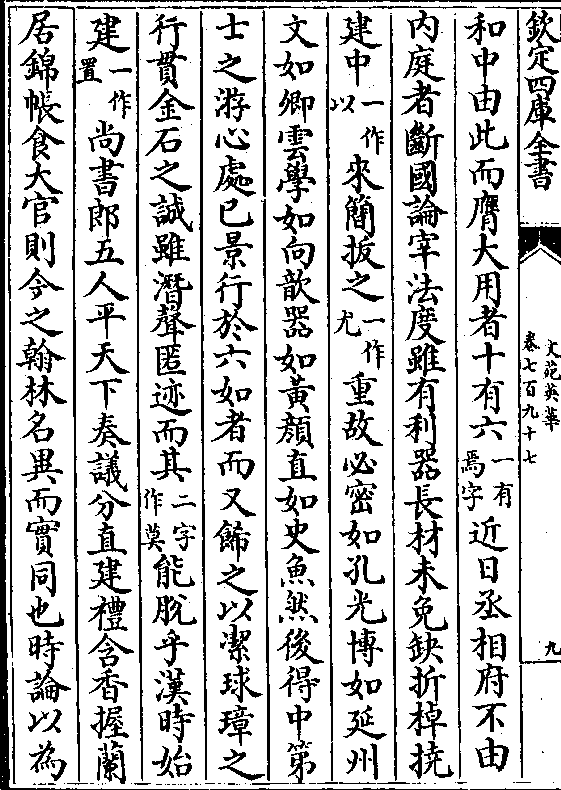 欽定四庫全書
文苑英華
卷七百九十七
九
和中由此而膺大用者十有六一有焉字近日丞相府不由
内庭者斷國論宰法度雖有利器長材未免缺折棹撓
建中一作以來簡拔之一作尤重故必密如孔光博如延州
文如卿雲學如向歆器如黄顔直如史魚然後得中第
士之游心處已景行於六如者而又飾之以潔球璋之
行貫金石之誠雖潛聲匿迹而其二字作莫能脱乎漢時始
建一作置尚書郎五人平天下奏議分直建禮含香握蘭
居錦帳食大官則今之翰林名異而實同也時論以為